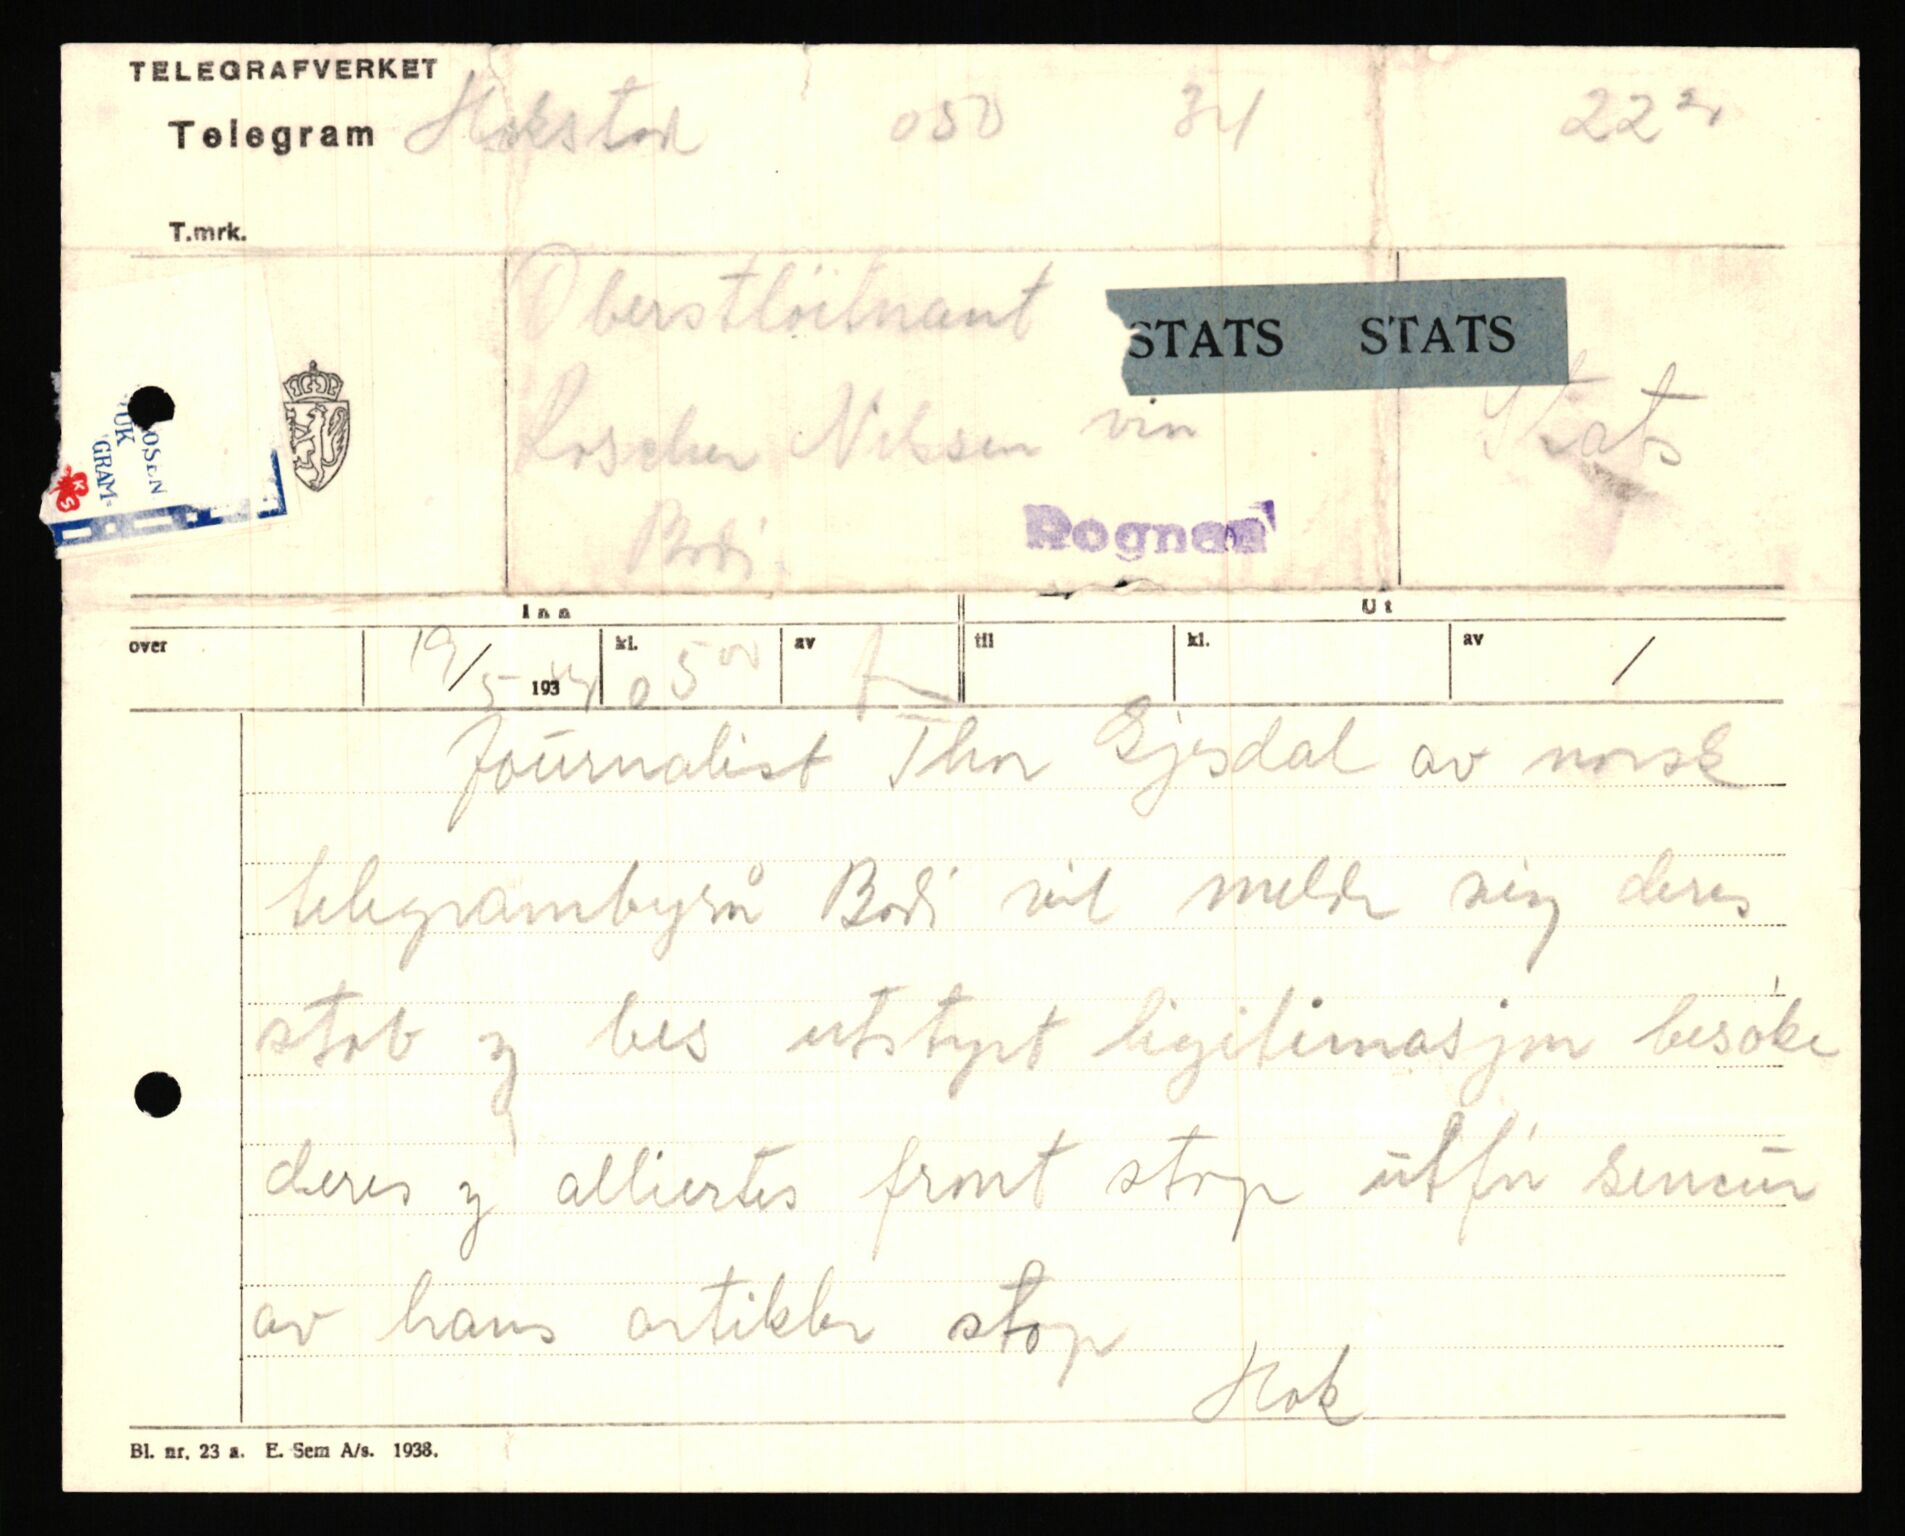 TELEGRAFVERKET
Telegram Hokstad 050 34 22
T.mrk.
Oberstløitnant
STATS STATS
Roscher Nilssen vin Stats
OSEN
UK
GRAM-
Bodö
Rognan
Inn Ut
over 19/5 1934 kl. 0500 av til kl. av /
Journalist Thor Gjesdal av norsk
telegrambyrå Bodö vil melde sig deres
stab og bes utstyrt legitimasjon besøke
deres og alliertes front stop utfør sencur
av hans artikler stop
Hok
Bl. nr. 23 a. E. Sem A/s. 1938.